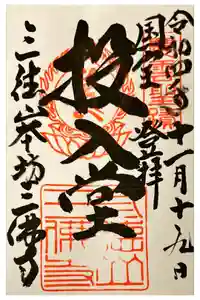 令和四年十一月十九日
国宝 登拝
投入堂
三徳山本坊三佛寺